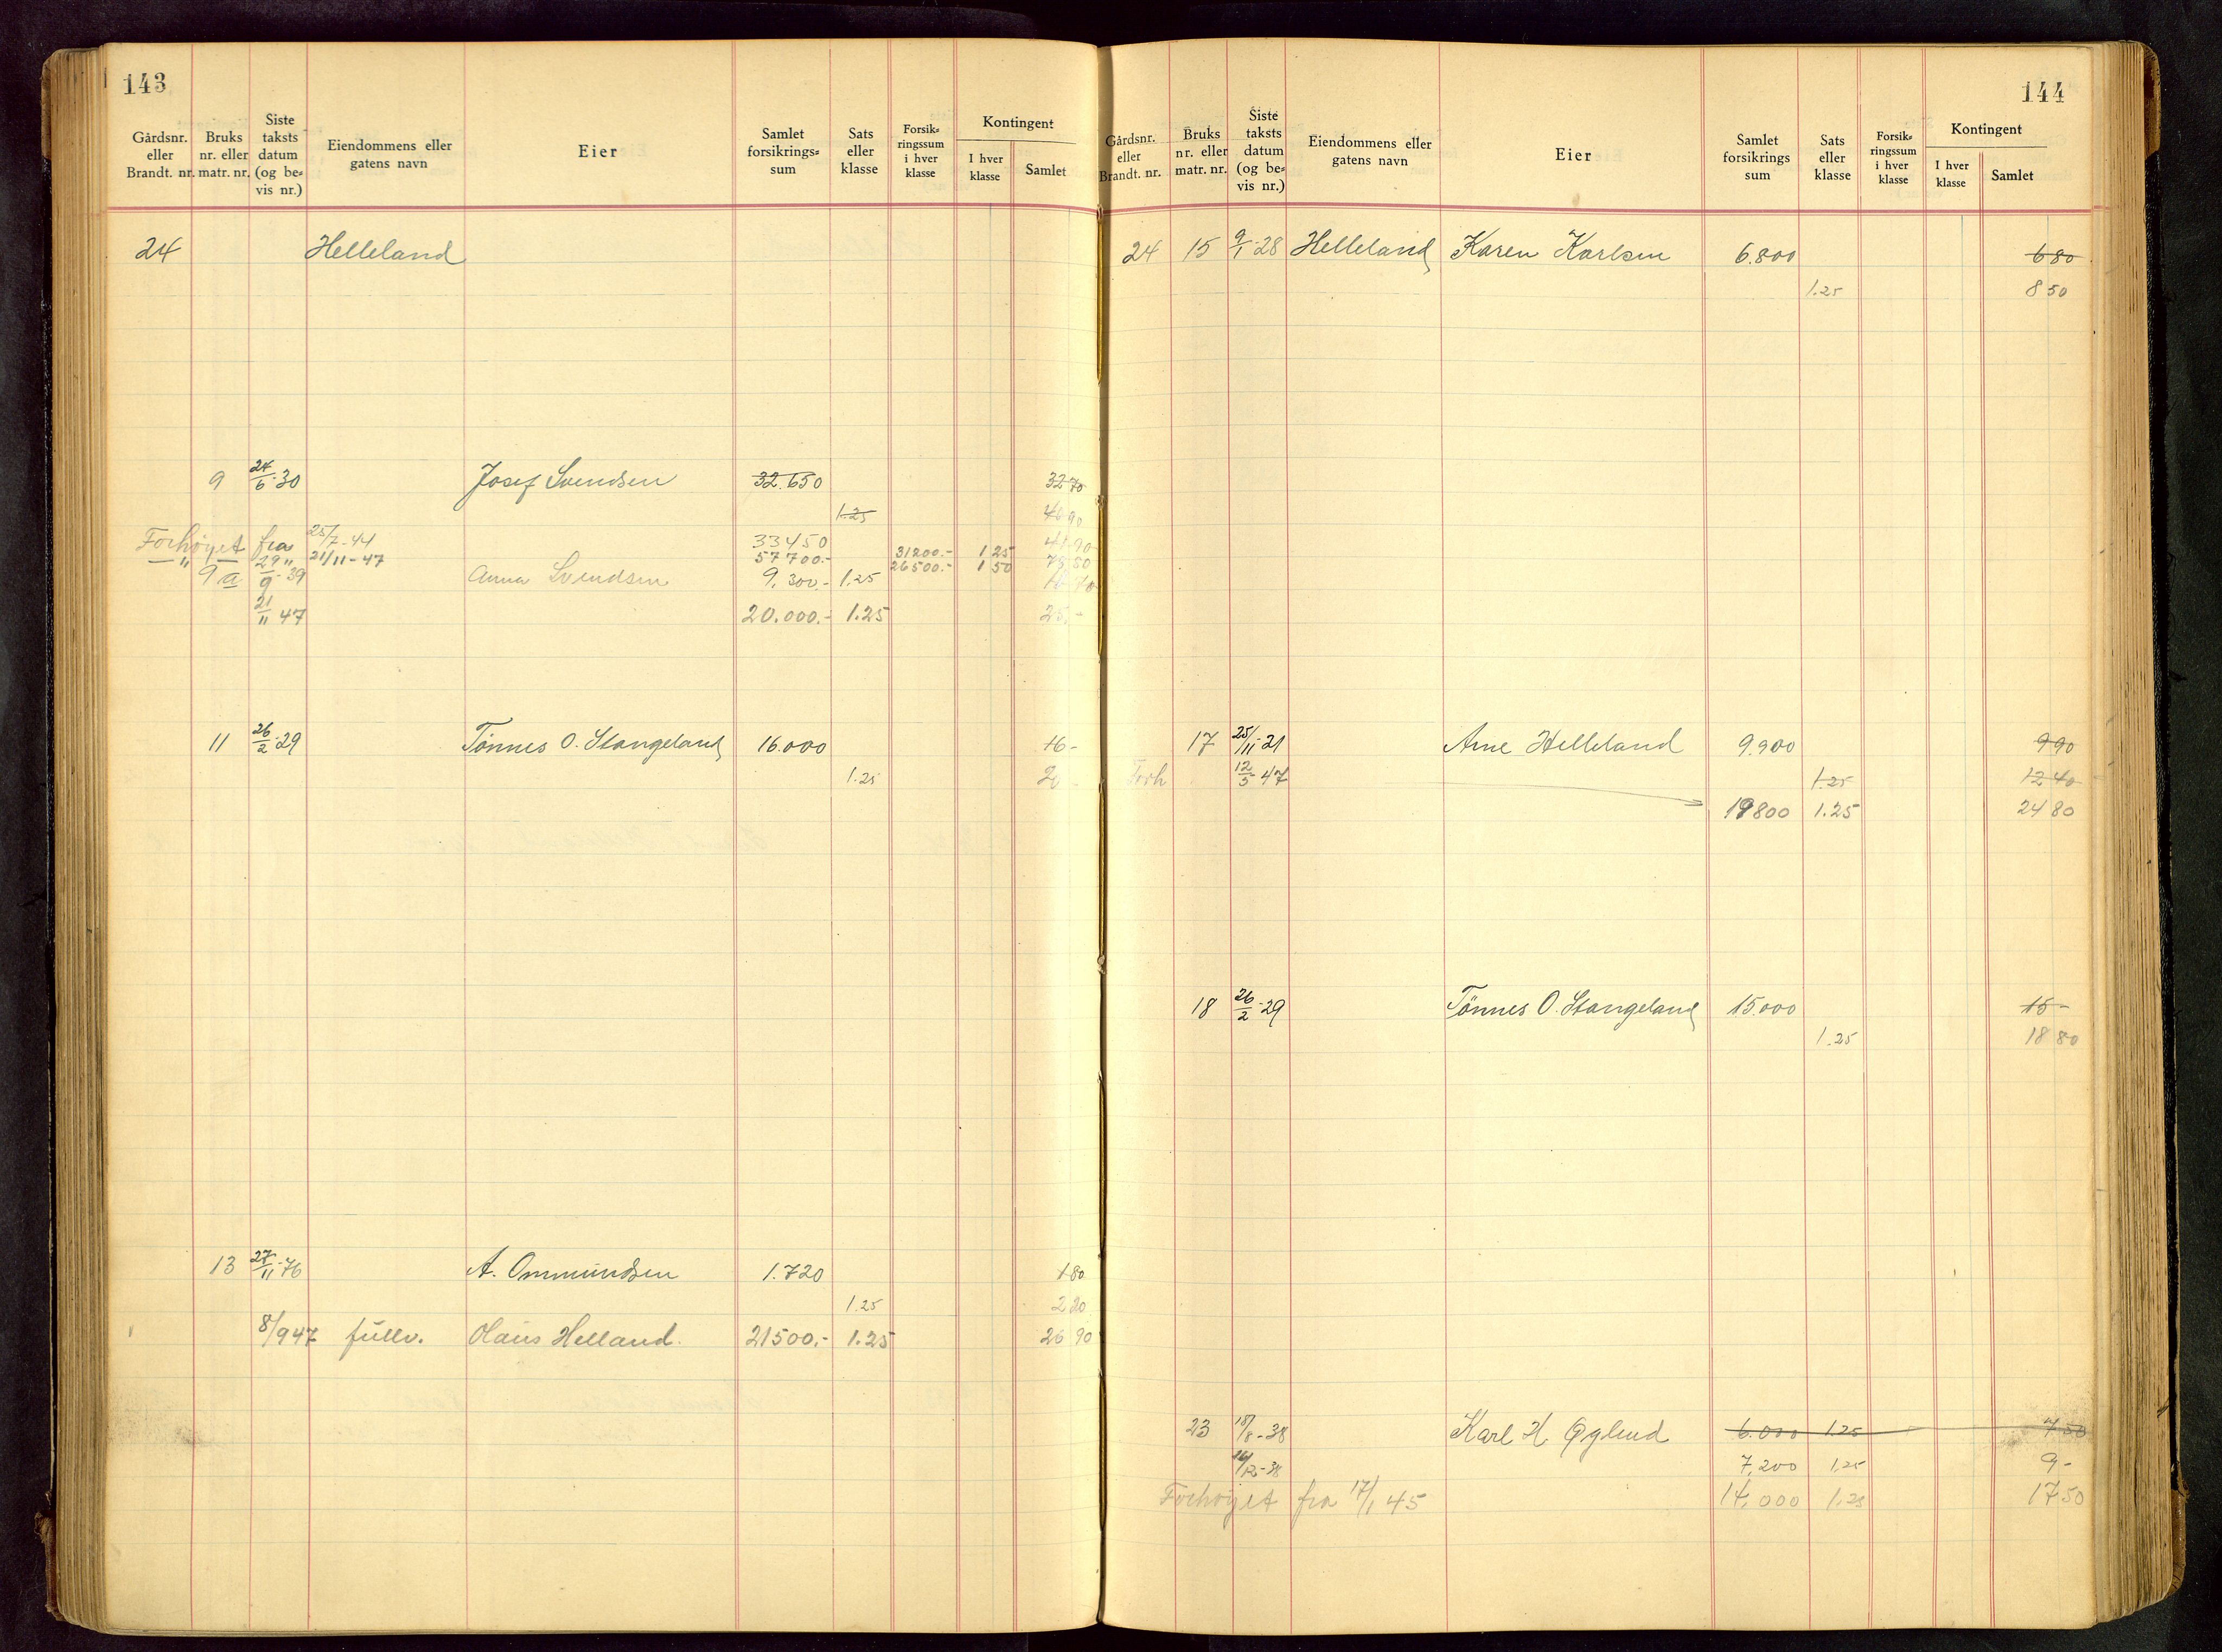 143
Gårdsnr. eller Brandt. nr. Bruks nr. eller matr. nr. Siste taksts datum (og bevis nr.) Eiendommens eller gatens navn Eier Samlet forsikrings=sum Sats eller klasse Forsik=ringssum i hver klasse Kontingent I hver klasse Samlet
24 Helleland
9 24/6-30 Josef Svendsen 32.650 32 70
1.25
Forhøyet fra 25/7-44 33450
" 29 " 21/11-47 57700.- 31200.- 1 25
9a 9-39 Anna Svendsen 9.300.- 1.25 26500.- 1 50
21/11 47 20.000.- 1.25 25.-
11 26/2-29 Tönnes O. Stangeland 16.000 16-
1.25 20 -
13 27/11-76 A. Ommundsen 1.720 1 80
1.25 2 20
8/9 47 fullv. Olaus Helland. 21500.- 1.25 26 90
144
Gårdsnr. eller Brandt. nr. Bruks nr. eller matr. nr. Siste taksts datum (og bevis nr.) Eiendommens eller gatens navn Eier Samlet forsikrings sum Sats eller klasse Forsik=ringssum i hver klasse Kontingent I hver klasse Samlet
24 15 9/1-28 Helleland Karen Karlsen 6.800 6 80
1.25 8 50
17 25/11-21 Arne Helleland 9.900 9 90
Forh 12/5 47 1.25 12 40
19800 1.25 24 80
18 26/2-29 Tönnes O. Stangeland 15.000 15-
1.25 18 80
23 18/8-38 Karl K. Øglend 6.000 1.25 7 50
16/12-38 7,200 1,25 9-
Forhøyet fra 17/1 45 14,000 1,25 17 50